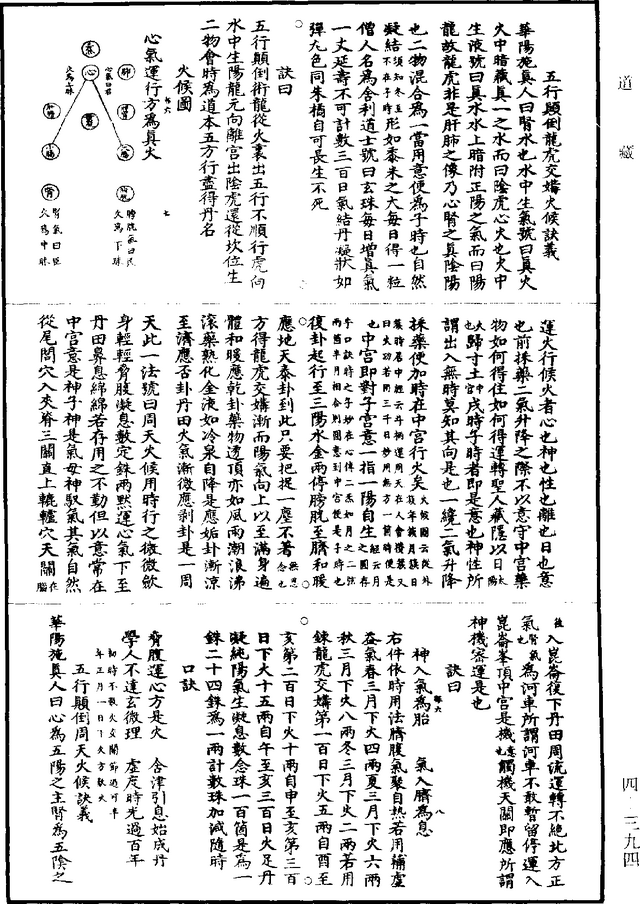 道藏
五行顛倒龍虎交媾火候訣義
華陽施真人曰腎水也水中生氣號曰真火
火中暗藏真一之水而曰陰虎心火也火中
生液號曰真水水上暗附正陽之氣而曰陽
龍故龍虎非是肝肺之像乃心腎之真陰陽
也二物混合為一當用意便為子時也自然
凝結須知冬至不在子時形如黍米之大每日得一粒
僧人名為舍利道士號曰玄珠每日增真氣
一丈延壽不可計數三百日氣結丹凝狀如
彈丸色同朱橘自可長生不死
訣曰
五行顛倒術龍從火裏出五行不順行虎向
水中生陽龍元向離宮出陰虎還從坎位生
二物會時為道本五方行盡得丹名
火候圖
心氣運行方為真火
心
肺
腎
腎氣曰臣
火為中昧
膀胱氣曰民
火為下昧
七
運火行候火者心也神也性也離也日也意
也前採藥二氣升降之際不以意守中宮藥
物如何得住如何得運轉聖人藏隱以日太陽
大也歸寸土中宮戌時子時者即是意也神性所
謂出入無時莫知其向是也一纔二氣升降
採藥便加時在中宮行火矣
也中宮即對子宮意一指一陽自生
復卦起行至三陽水金兩停膀胱至臍和暖
應地天泰卦到此只要把捉一塵不著無思念也
方得龍虎交媾漸而陽氣向上以至滿身遍
體和暖應乾卦藥物透頂亦如風雨潮浪沸
滾藥熟化金液如冷泉自降是應姤卦漸涼
至濟應否卦丹田火氣漸微應剝卦是一周
天此一法號曰周天火候用時行之微微歛
身輕輕脅腹凝息數定銖兩默運心氣下至
丹田鼻息綿綿若存用之不勤但以意常在
中宮意是神子神是氣母神馭氣其氣自然
從尾閭穴入夾脊三關直上轆轤穴天關在腦
後入崑崙復下丹田周流運轉不絕北方正
氣腎氣也為河車所謂河車不敢暫留停運入
崑崙峯頂中宮是機意也觸機天關即應所謂
神機密運是也
訣曰
神入氣為胎　氣入臍為息
八
右件依時用法臍腹氣聚自熱若用補虛
益氣春三月下火四兩夏三月下火六兩
秋三月下火八兩冬三月下火二兩若用
鍊龍虎交媾第一百日下火五兩自酉至
亥第二百日下火十兩自申至亥第三百
日下火十五兩自午至亥三百日火足丹
凝純陽氣生凝息數念珠一百箇是為一
銖二十四銖為一兩計數珠加減隨時
口訣
脅腹運心方是火　含津引息始成丹
學人不達玄微理　虛度時光過百年
五行顛倒周天火候訣義
華陽施真人曰心為五陽之主腎為五陰之
四-三九四